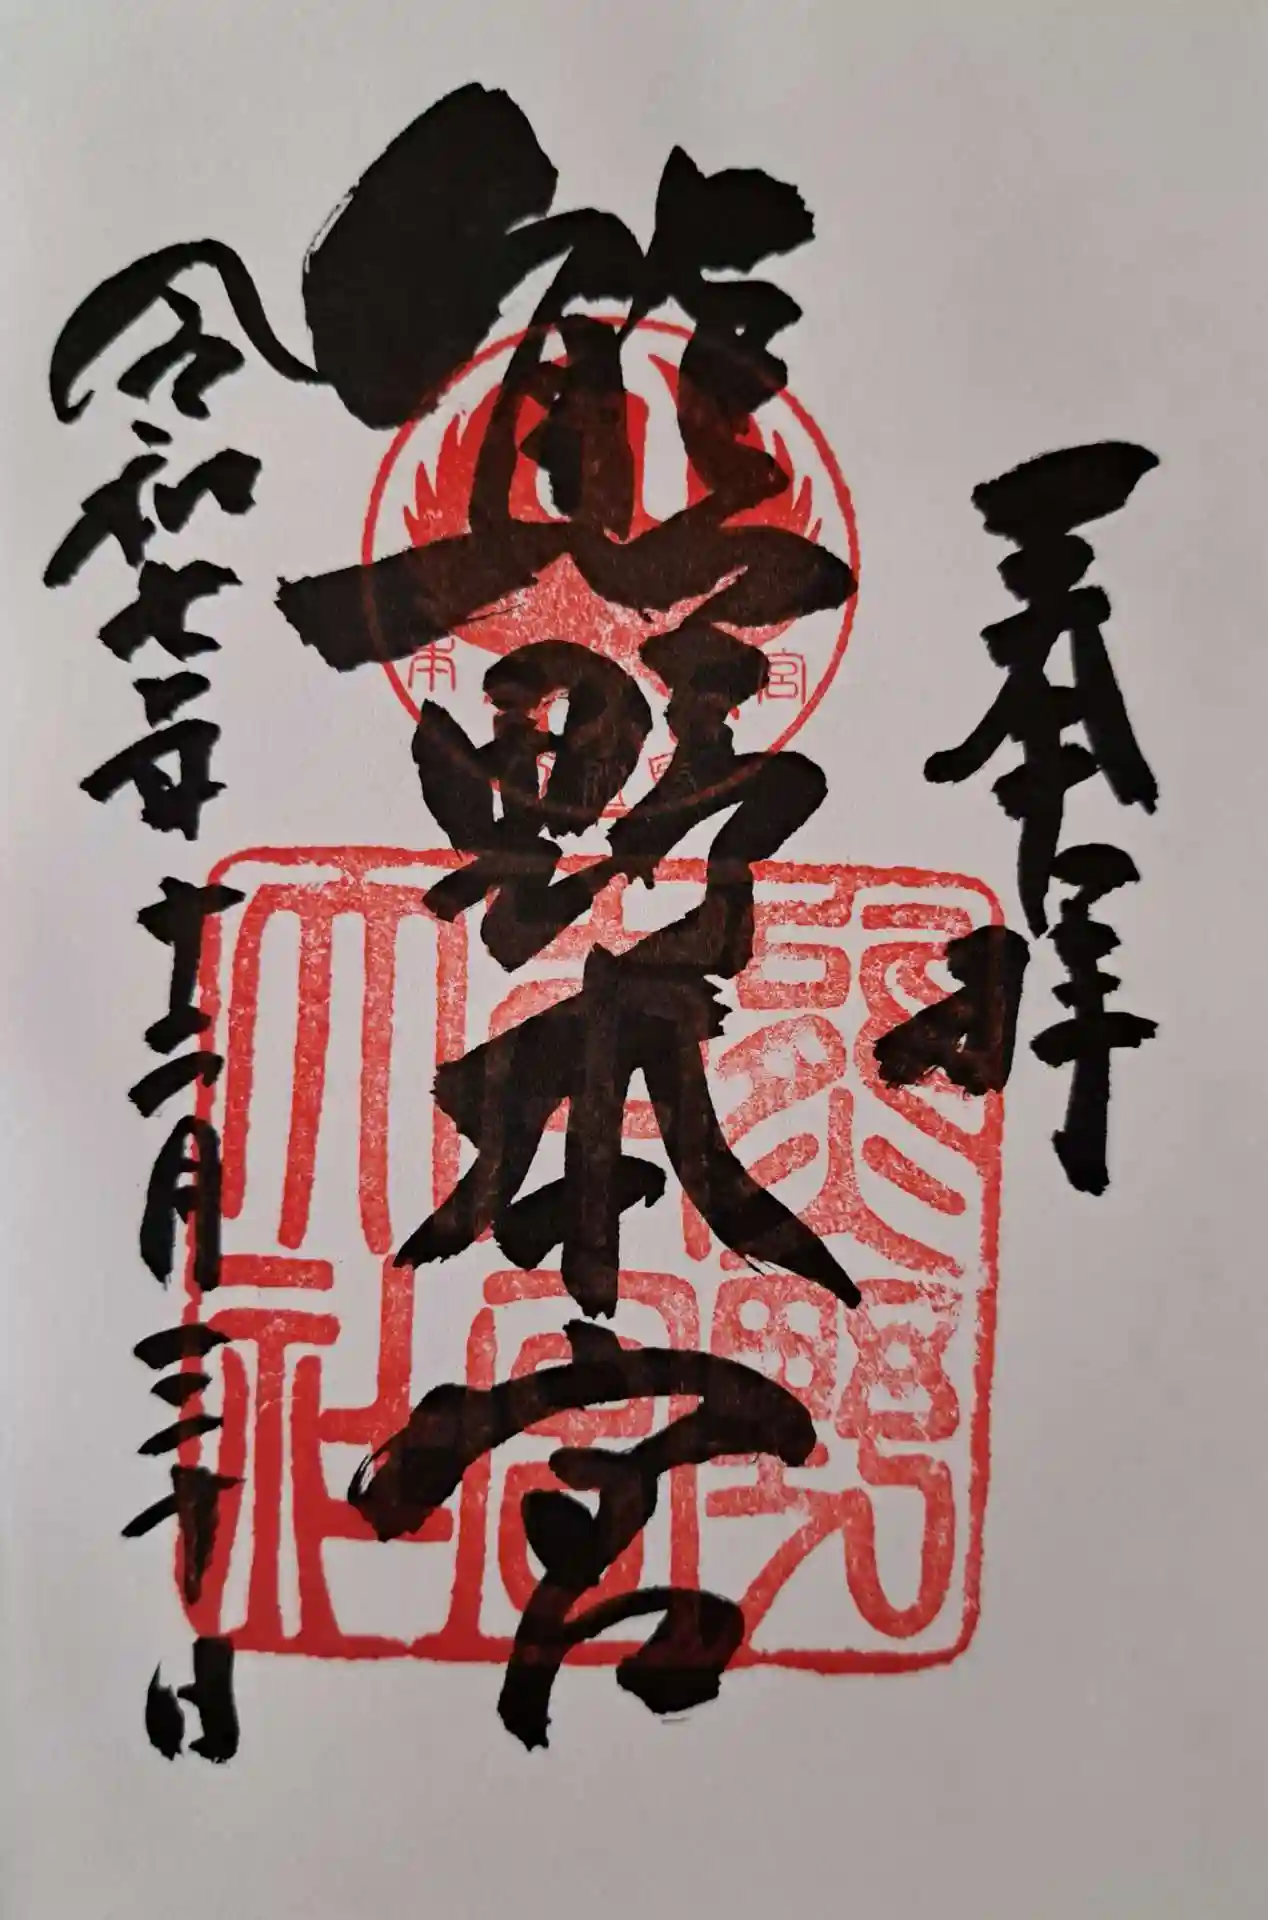 奉拝
熊野本宮
令和七年十二月三十日
熊野
本宮
大社
本
宮